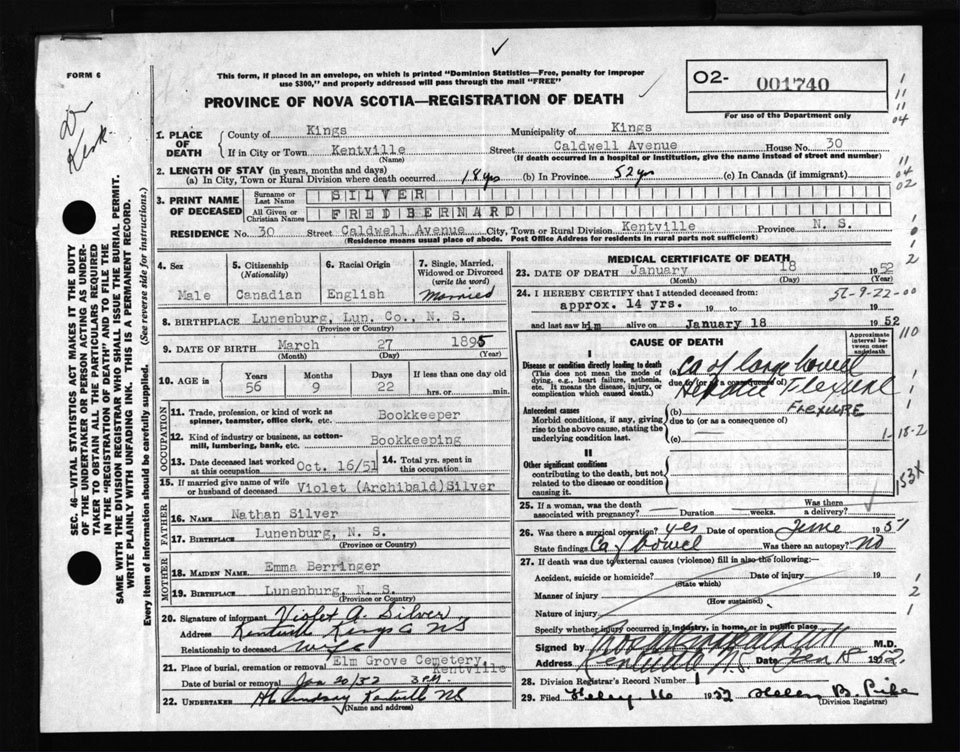 FORM 6
This form, if placed in an envelope, on which is printed "Dominion Statistics—Free, penalty for improper
use $300," and properly addressed will pass through the mail "FREE"
PROVINCE OF NOVA SCOTIA—REGISTRATION OF DEATH
O2- 001740
For use of the Department only
SEC. 46—VITAL STATISTICS ACT MAKES IT THE DUTY
OF THE UNDERTAKER OR PERSON ACTING AS UNDER-
TAKER TO OBTAIN ALL THE PARTICULARS REQUIRED
IN THE "REGISTRATION OF DEATH" AND TO FILE THE
SAME WITH THE DIVISION REGISTRAR WHO SHALL ISSUE THE BURIAL PERMIT.
WRITE PLAINLY WITH UNFADING INK. THIS IS A PERMANENT RECORD.
Every item of information should be carefully supplied. (See reverse side for instructions.)
1. PLACE OF DEATH
County of Kings Municipality of Kings
If in City or Town Kentville Street Caldwell Avenue House No. 30
(Name) (If death occurred in a hospital or institution, give the name instead of street and number)
2. LENGTH OF STAY (in years, months and days)
(a) In City, Town or Rural Division where death occurred 18 yrs (b) In Province 52 yrs (c) In Canada (if immigrant)
3. PRINT NAME OF DECEASED
Surname or Last Name SILVER
All Given or Christian Names FRED BERNARD
RESIDENCE No. 30 Street Caldwell Avenue City, Town or Rural Division Kentville Province N. S.
(Residence means usual place of abode. Post Office Address for residents in rural parts not sufficient)
4. Sex Male
5. Citizenship (Nationality) Canadian
6. Racial Origin English
7. Single, Married, Widowed or Divorced (write the word) Married
8. BIRTHPLACE Lunenburg, Lun. Co., N. S.
(Province or Country)
9. DATE OF BIRTH March 27 1895
(Month) (Day) (Year)
10. AGE in Years 56 Months 9 Days 22 If less than one day old hrs. or min.
OCCUPATION
11. Trade, profession, or kind of work as spinner, teamster, office clerk, etc. Bookkeeper
12. Kind of industry or business, as cotton-mill, lumbering, bank, etc. Bookkeeping
13. Date deceased last worked at this occupation Oct. 16/51 14. Total yrs. spent in this occupation
15. If married give name of wife or husband of deceased Violet (Archibald) Silver
FATHER
16. NAME Nathan Silver
17. BIRTHPLACE Lunenburg, N. S.
(Province or Country)
MOTHER
18. MAIDEN NAME Emma Berringer
19. BIRTHPLACE Lunenburg, N. S.
(Province or Country)
20. Signature of informant Violet A. Silver
Address Kentville Kings Co NS
Relationship to deceased Wife
21. Place of burial, cremation or removal Elm Grove Cemetery, Kentville
Date of burial or removal Jan 20/52 3 P.M.
22. UNDERTAKER Lindsay Kentville NS
(Name and address)
MEDICAL CERTIFICATE OF DEATH
23. DATE OF DEATH January 18 1952
(Month) (Day) (Year)
24. I HEREBY CERTIFY that I attended deceased from:
approx. 14 yrs. 19 to 19
and last saw him alive on January 18 1952
CAUSE OF DEATH
Approximate interval between onset and death
I
Disease or condition directly leading to death
(This does not mean the mode of dying, e.g., heart failure, asthenia, etc. It means the disease, injury, or complication which caused death.)
(a) Ca of large bowel
due to (or as a consequence of) Hepatic Flexure
FLEXURE
Antecedent causes
Morbid conditions, if any, giving rise to the above cause, stating the underlying condition last.
(b)
due to (or as a consequence of)
(c)
II
Other significant conditions
contributing to the death, but not related to the disease or condition causing it.
25. If a woman, was the death associated with pregnancy? Duration weeks. Was there a delivery?
26. Was there a surgical operation? yes Date of operation June 1951
State findings Ca of bowel Was there an autopsy? No
27. If death was due to external causes (violence) fill in also the following:—
Accident, suicide or homicide? Date of injury 19
(State which)
Manner of injury
(How sustained)
Nature of injury
Specify whether injury occurred in industry, in home, or in public place.
Signed by M.D.
Address Kentville N.S. Date 1952
28. Division Registrar's Record Number 1
29. Filed 16 1952 Helen B. Pike
(Division Registrar)